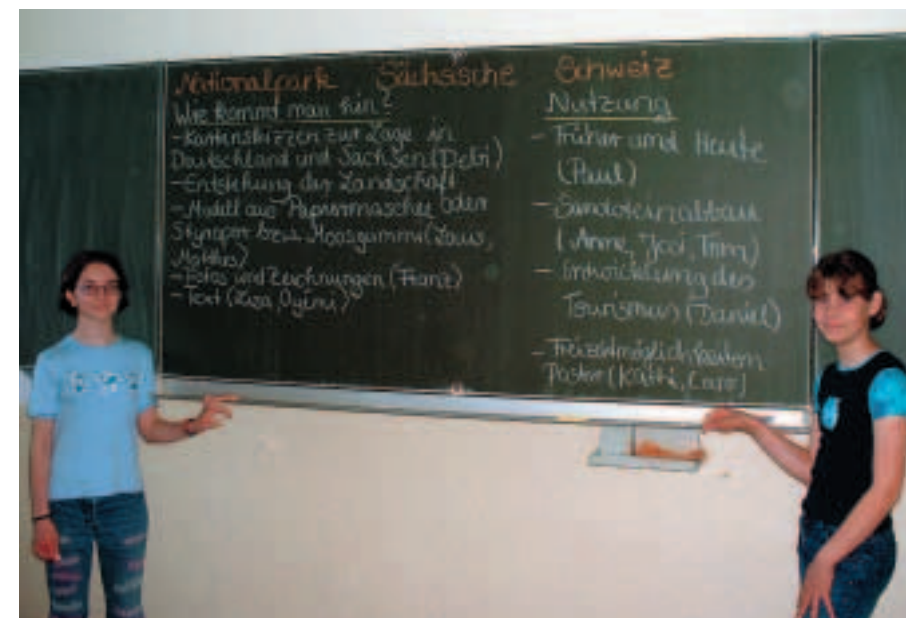 Nationalpark Sächsische Schweiz
Wie kommt man hin?
- Kartenskizzen zur Lage in
Deutschland und Sachsen (Debi)
- Entstehung der Landschaft
- Modell aus Papiermaschee oder
Styropor bzw. Moosgummi (Laus,
- Fotos und Zeichnungen (Franz)
- Text (Lisa,
Nutzung
- Früher und Heute
(Paul)
- Sandsteinabbau
(Anne,
- Entwicklung des
Tourismus (Daniel)
- Freizeitmöglichkeiten
Poster (Kathi,